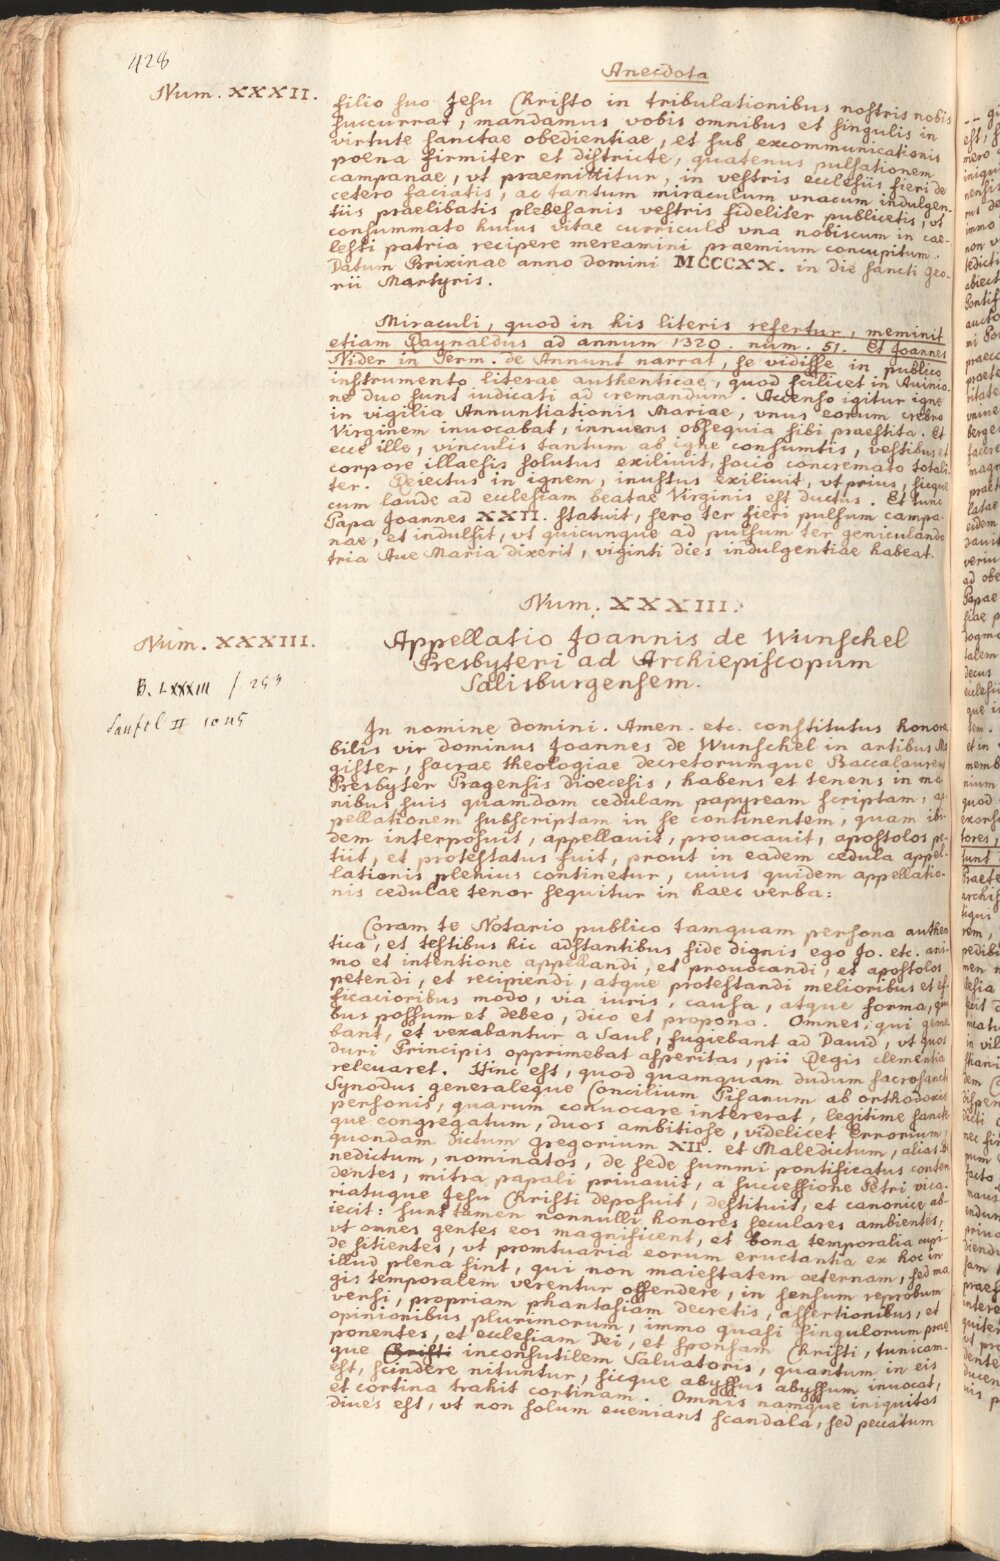 428
Anecdota
Num. XXXII.
filio suo Jesu Christo in tribulationibus nostris nobis
succurrat, mandamus vobis omnibus et singulis in
virtute sanctae obedientiae, et sub excommunicationis
poena firmiter et districte, quatenus pulsationem
campanae, vt praemittitur, in vestris ecclesiis fieri de
cetero faciatis, ac tantum miraculum vnacum indulgen-
tiis praelibatis plebesanis vestris fideliter publicetis, vt
consummato huius vitae curriculo vna nobiscum in cae-
lesti patria recipere mereamini praemium concupitum.
Datum Brixinae anno domini MCCCXX. in die sancti Geo-
rii Martyris.
Miraculi, quod in his literis refertur, meminit
etiam Raynaldus ad annum 1320. num. 51. Et Joannes
Nider in Serm. de Annunt narrat, se vidisse in publico
instrumento literae authenticae, quod scilicet in Auinio
ne duo sunt iudicati ad cremandum. Accenso igitur igne
in vigilia Annuntiationis Mariae, vnus eorum crebro
Virginem inuocabat, innuens obsequia sibi praestita. Et
ecce ille, vinculis tantum ab igne consumtis, vestibus et
corpore illaesis solutus exiliuit, socio concremato totali
ter. Reiectus in ignem, inustus exiliuit, vt prius, sicque
cum laude ad ecclesiam beatae Virginis est ductus. Et tunc
Papa Joannes XXII. statuit, sero ter fieri pulsum campa-
nae, et indulsit, vt quicunque ad pulsum ter geniculando
tria Aue Maria dixerit, viginti dies indulgentiae habeat.
Num. XXXIII.
Num. XXXIII.
B. LXXXIII f 253
II 1045
Appellatio Joannis de Wunschel
Presbyteri ad Archiepiscopum
Salisburgensem.
In nomine domini. Amen. etc. constitutus honora
bilis vir dominus Joannes de Wunschel in artibus Ma
gister, sacrae theologiae decretorumque Baccalaureus
Presbyter Pragensis dioecesis, habens et tenens in ma
nibus suis quamdam cedulam papyream scriptam, ap
pellationem subscriptam in se continentem, quam ibi
dem interposuit, appellauit, prouocauit, apostolos pe-
tiit, et protestatus fuit, prout in eadem cedula appel-
lationis plenius continetur, cuius quidem appellatio-
nis cedulae tenor sequitur in haec verba:
Coram te Notario publico tamquam persona authen
tica, et testibus hic adstantibus fide dignis ego Jo. etc. ani-
mo et intentione appellandi, et prouocandi, et apostolos
petendi, et recipiendi, atque protestandi melioribus et ef
ficacioribus modo, via iuris, causa, atque forma, qui
bus possum et debeo, dico et propono. Omnes, qui geme
bant, et vexabantur a Saul, fugiebant ad Dauid, vt quos
duri Principis opprimebat asperitas, pii Regis clementia
releuaret. Hinc est, quod quamquam dudum sacrosancta
Synodus generaleque Concilium Pisanum ab orthodoxis
personis, quarum conuocare intererat, legitime sancte
que congregatum, duos ambitiose, videlicet Errorium,
quondam dictum Gregorium XII. et Maledictum, alias Be
nedictum, nominatos, de sede summi pontificatus conten
dentes, mitra papali priuauit, a successione Petri vica-
riatuque Jesu Christi deposuit, destituit, et canonice ab-
iecit: sunt tamen nonnulli honores seculares ambientes,
vt omnes gentes eos magnificent, et bona temporalia cupi-
de sitientes, vt promtuaria eorum eructantia ex hoc in
illud plena sint, qui non maiestatem aeternam, sed ma
gis temporalem verentur offendere, in sensum reprobum
versi, propriam phantasiam decretis, assertionibus, et
opinionibus plurimorum, immo quasi singulorum prae
ponentes, et ecclesiam Dei, et sponsam Christi, tunicam-
que Christi inconsutilem Saluatoris, quantum in eis
est, scindere nituntur, sicque abyssus abyssum inuocat,
et cortina trahit cortinam. Omnis namque iniquitas
diues est, vt non solum eueniant scandala, sed peccatum